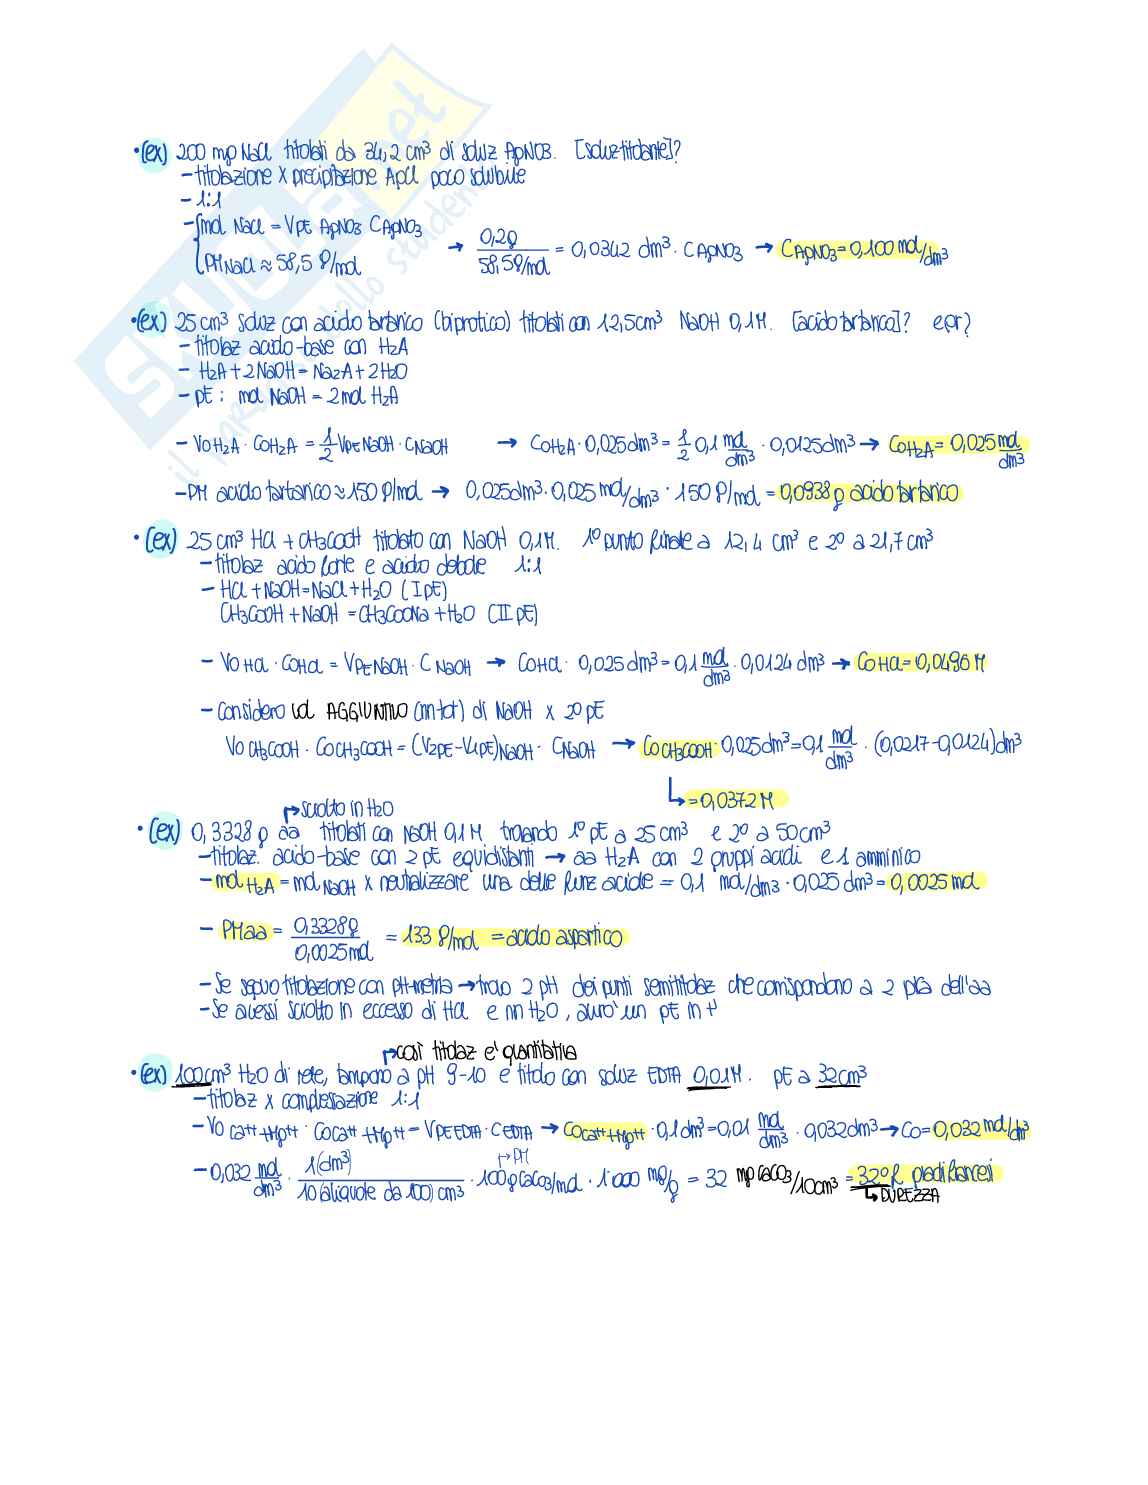 • (ex) 200 mg NaCl titolati da 34,2 cm³ di soluz AgNO3. [soluz titolante]?
– titolazione x precipitazione AgCl poco solubile
– 1:1
– { mol NaCl = VPE AgNO3 CAgNO3
PMNaCl ≈ 58,5 g/mol → 0,2g / 58,5g/mol = 0,0342 dm³ · CAgNO3 → CAgNO3 = 0,100 mol/dm³
• (ex) 25 cm³ soluz con acido tartarico (biprotico) titolati con 12,5 cm³ NaOH 0,1M. [acido tartarico]? e gr?
– titolaz acido-base con H2A
– H2A + 2NaOH = Na2A + 2H2O
– pE : mol NaOH = 2 mol H2A
– V0H2A · C0H2A = 1/2 VPE NaOH · CNaOH → C0H2A · 0,025 dm³ = 1/2 0,1 mol/dm³ · 0,0125 dm³ → C0H2A = 0,025 mol/dm³
– PM acido tartarico ≈ 150 g/mol → 0,025 dm³ · 0,025 mol/dm³ · 150 g/mol = 0,0938 g acido tartarico
• (ex) 25 cm³ HCl + CH3COOH titolato con NaOH 0,1M. 1° punto finale a 12,4 cm³ e 2° a 21,7 cm³
– titolaz acido forte e acido debole 1:1
– HCl + NaOH = NaCl + H2O (I pE)
CH3COOH + NaOH = CH3COONa + H2O (II pE)
– V0HCl · C0HCl = VPE NaOH · CNaOH → C0HCl · 0,025 dm³ = 0,1 mol/dm³ · 0,0124 dm³ → C0HCl = 0,0496 M
– Considero vol AGGIUNTIVO (nn tot) di NaOH x 2° pE
V0CH3COOH · C0CH3COOH = (V2PE – V1PE)NaOH · CNaOH → C0CH3COOH · 0,025 dm³ = 0,1 mol/dm³ · (0,0217 – 0,0124) dm³
↳ = 0,0372 M
↱ sciolto in H2O
• (ex) 0,3328 g aa titolati con NaOH 0,1M trovando 1° pE a 25 cm³ e 2° a 50 cm³
– titolaz. acido-base con 2 pE equidistanti → aa H2A con 2 gruppi acidi e 1 amminico
– mol H2A = mol NaOH x neutralizzare una delle funz acide = 0,1 mol/dm³ · 0,025 dm³ = 0,0025 mol
– PMaa = 0,3328g / 0,0025 mol = 133 g/mol = acido aspartico
– Se seguo titolazione con pH-metria → trovo 2 pH dei punti semititolaz che corrispondono a 2 pKa dell'aa
– Se avessi sciolto in eccesso di HCl e nn H2O, avro' un pE in +
↱ così titolaz e' quantitativa
• (ex) 100 cm³ H2O di rete, tampono a pH 9-10 e titolo con soluz EDTA 0,01M. pE a 32 cm³
– titolaz x complessazione 1:1
– V0 Ca++ + Mg++ · C0 Ca++ + Mg++ = VPE EDTA · CEDTA → C0 Ca++ + Mg++ · 0,1 dm³ = 0,01 mol/dm³ · 0,032 dm³ → C0 = 0,032 mol/dm³
↱ PM
– 0,032 mol/dm³ · 1 (dm³) / 10 (aliquote da 100) cm³ · 100 g CaCO3/mol · 1'000 mg/g = 32 mg CaCO3/10cm³ = 32° f gradi francesi
↳ DUREZZA